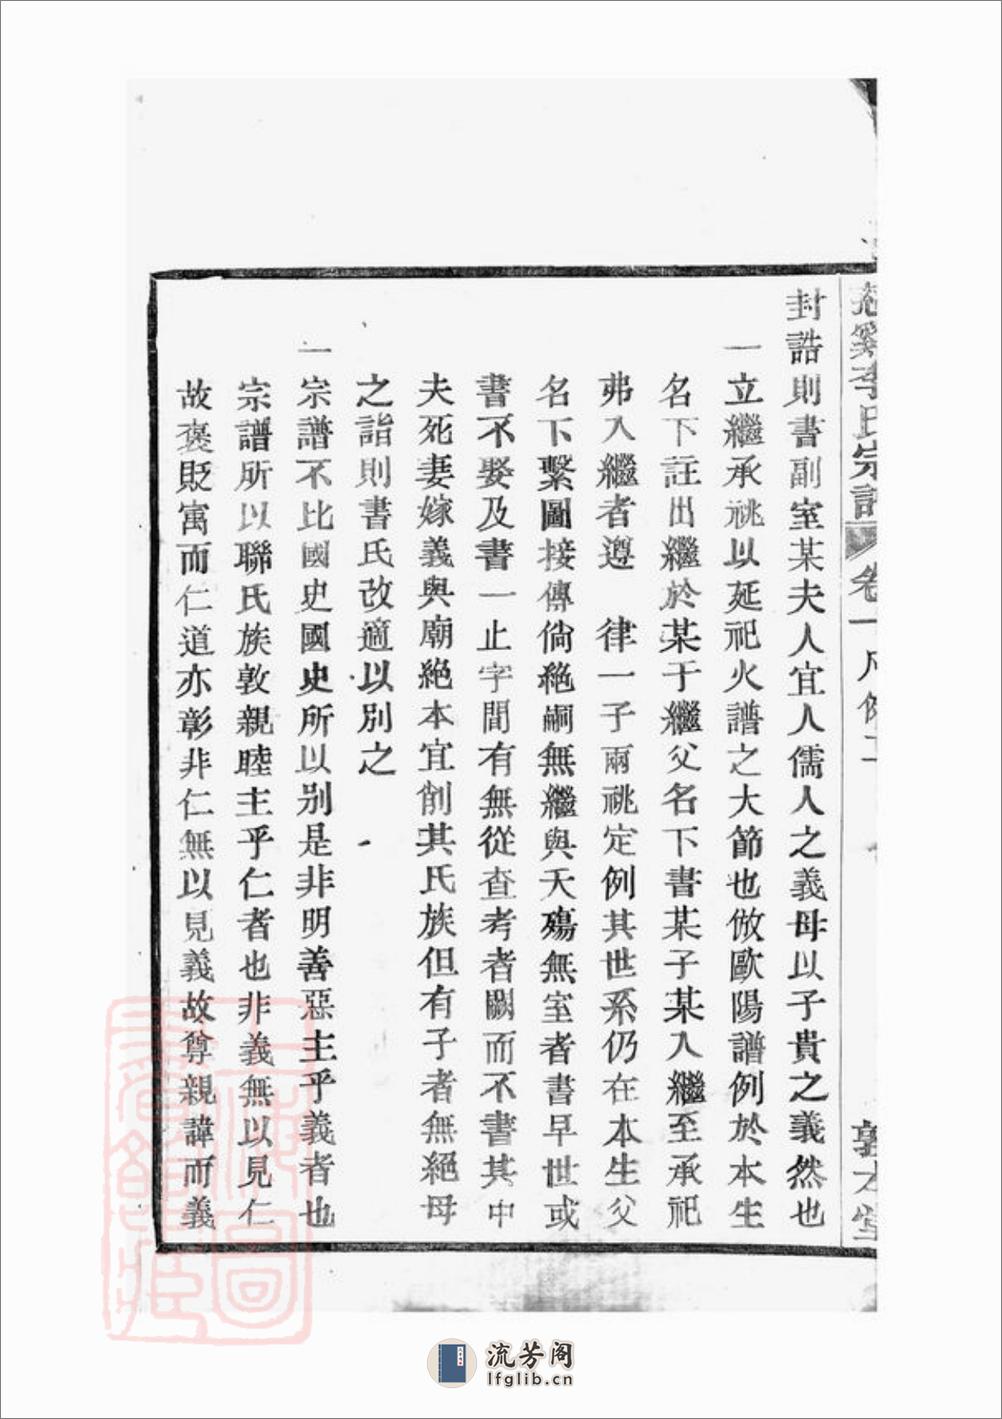 封誥則書副室某夫人宜人儒人之義母以子貴之義然也
一立繼承祧以延祀火譜之大節也倣歐陽譜例於本生
名下註出繼於某于繼父名下書某子某入繼至承祀
弗入繼者遵　律一子兩祧定例其世系仍在本生父
名下繫圖接傳倘絶嗣無繼與夭殤無室者書早世或
書不娶及書一止字間有無從查考者闕而不書其中
夫死妻嫁義與廟絶本宜削其氏族但有子者無絕母
之詣則書氏改適以別之
一宗譜不比國史國史所以别是非明善惡主乎義者也
宗譜所以聯氏族敦親睦主乎仁者也非義無以見仁
故褒貶寓而仁道亦彰非仁無以見義故尊親諱而義
李氏宗譜 卷一 凡例
流芳阁
lfglib.cn